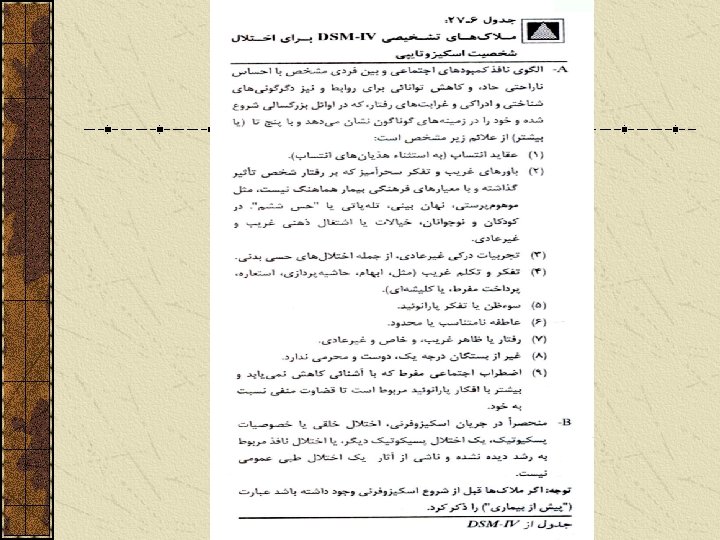 جدول ۶ـ۲۷:
ملاک‌های تشخیصی DSM-IV برای اختلال
شخصیت اسکیزوتایپی
A- الگوی نافذ کمبودهای اجتماعی و بین فردی مشخص با احساس
ناراحتی حاد، و کاهش توانائی برای روابط و نیز دگرگونی‌های
شناختی و ادراکی و غرابت‌های رفتار، که در اوائل بزرگسالی شروع
شده و خود را در زمینه‌های گوناگون نشان می‌دهد و با پنج تا (یا
بیشتر) از علائم زیر مشخص است:
(۱) عقاید انتساب (به استثناء هذیان‌های انتساب).
(۲) باورهای غریب و تفکر سحرآمیز که بر رفتار شخص تأثیر
گذاشته و با معیارهای فرهنگی بیمار هماهنگ نیست، مثل
موهوم‌پرستی، نهان بینی، تله‌پاتی یا "حس ششم". در
کودکان و نوجوانان، خیالات یا اشتغال ذهنی غریب و
غیرعادی.
(۳) تجربیات درکی غیرعادی، از جمله اختلال‌های حسی بدنی.
(۴) تفکر و تکلم غریب (مثل، ابهام، حاشیه‌پردازی، استعاره،
پرداخت مفرط، یا کلیشه‌ای).
(۵) سوءظن یا تفکر پارانوئید.
(۶) عاطفه نامتناسب یا محدود.
(۷) رفتار یا ظاهر غریب، و خاص و غیرعادی.
(۸) غیر از بستگان درجه یک، دوست و محرمی ندارد.
(۹) اضطراب اجتماعی مفرط که با آشنائی کاهش نمی‌یابد و
بیشتر با افکار پارانوئید مربوط است تا قضاوت منفی نسبت
به خود.
B- منحصراً در جریان اسکیزوفرنی، اختلال خلقی با خصوصیات
پسیکوتیک، یک اختلال پسیکوتیک دیگر، یا اختلال نافذ مربوط
به رشد دیده نشده و ناشی از آثار یک اختلال طبی عمومی
نیست.
توجه: اگر ملاک‌ها قبل از شروع اسکیزوفرنی وجود داشته باشد عبارت
("پیش از بیماری") را ذکر کرد.
جدول از DSM-IV